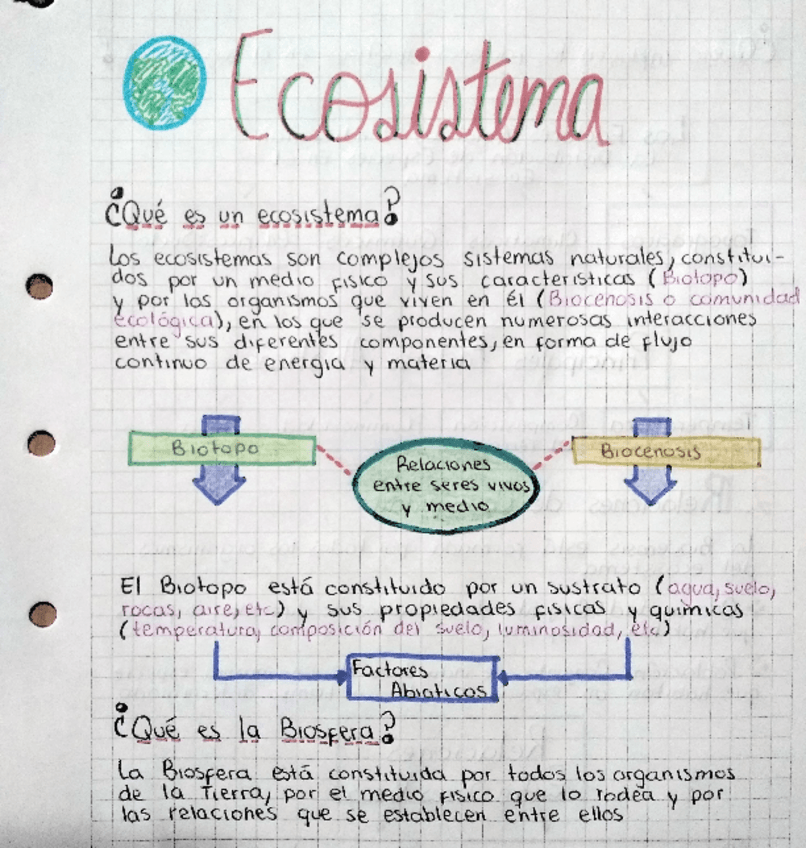 Ecosistema
¿Qué es un ecosistema?
Los ecosistemas son complejos sistemas naturales, constitui-
dos por un medio físico y sus características (Biotopo)
y por los organismos que viven en él (Biocenosis o comunidad
ecológica), en los que se producen numerosas interacciones
entre sus diferentes componentes, en forma de flujo
continuo de energía y materia
Biotopo
Relaciones
entre seres vivos
y medio
Biocenosis
El Biotopo está constituido por un sustrato (agua, suelo,
rocas, aire, etc) y sus propiedades físicas y químicas
(temperatura, composición del suelo, luminosidad, etc)
Factores
Abiaticos
¿Qué es la Biosfera?
La Biosfera está constituida por todos los organismos
de la Tierra, por el medio físico que lo rodea y por
las relaciones que se establecen entre ellos